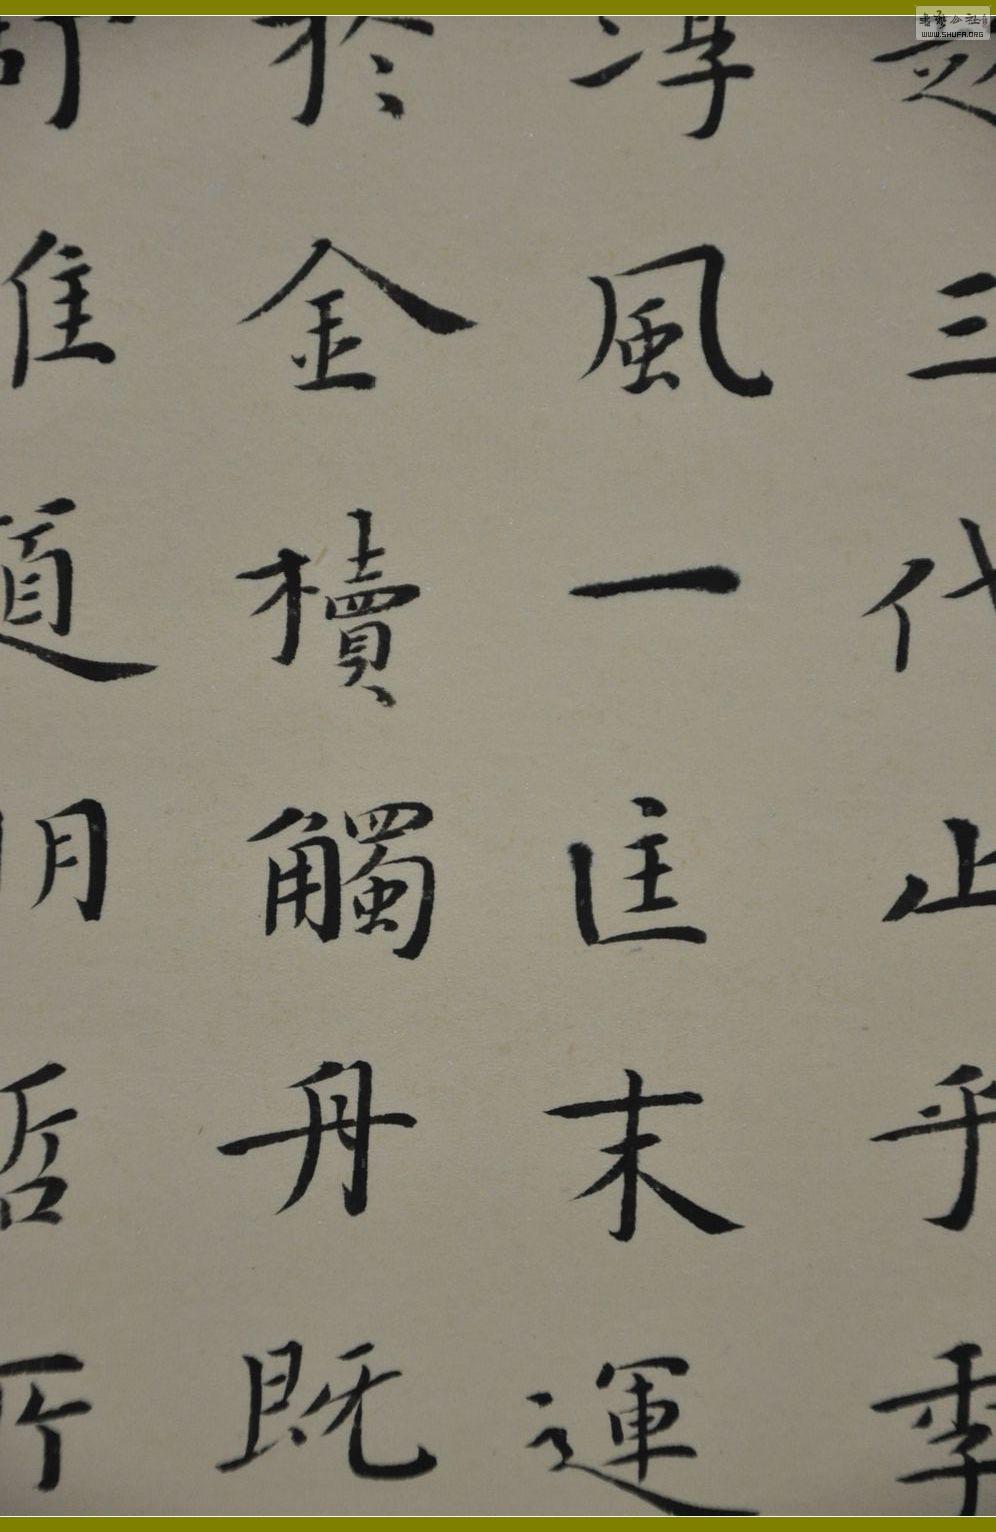 書法公社
WWW.SHUFA.ORG
三代止乎季
淳風一匡末運
於金櫝觸舟既
惟道明哲所